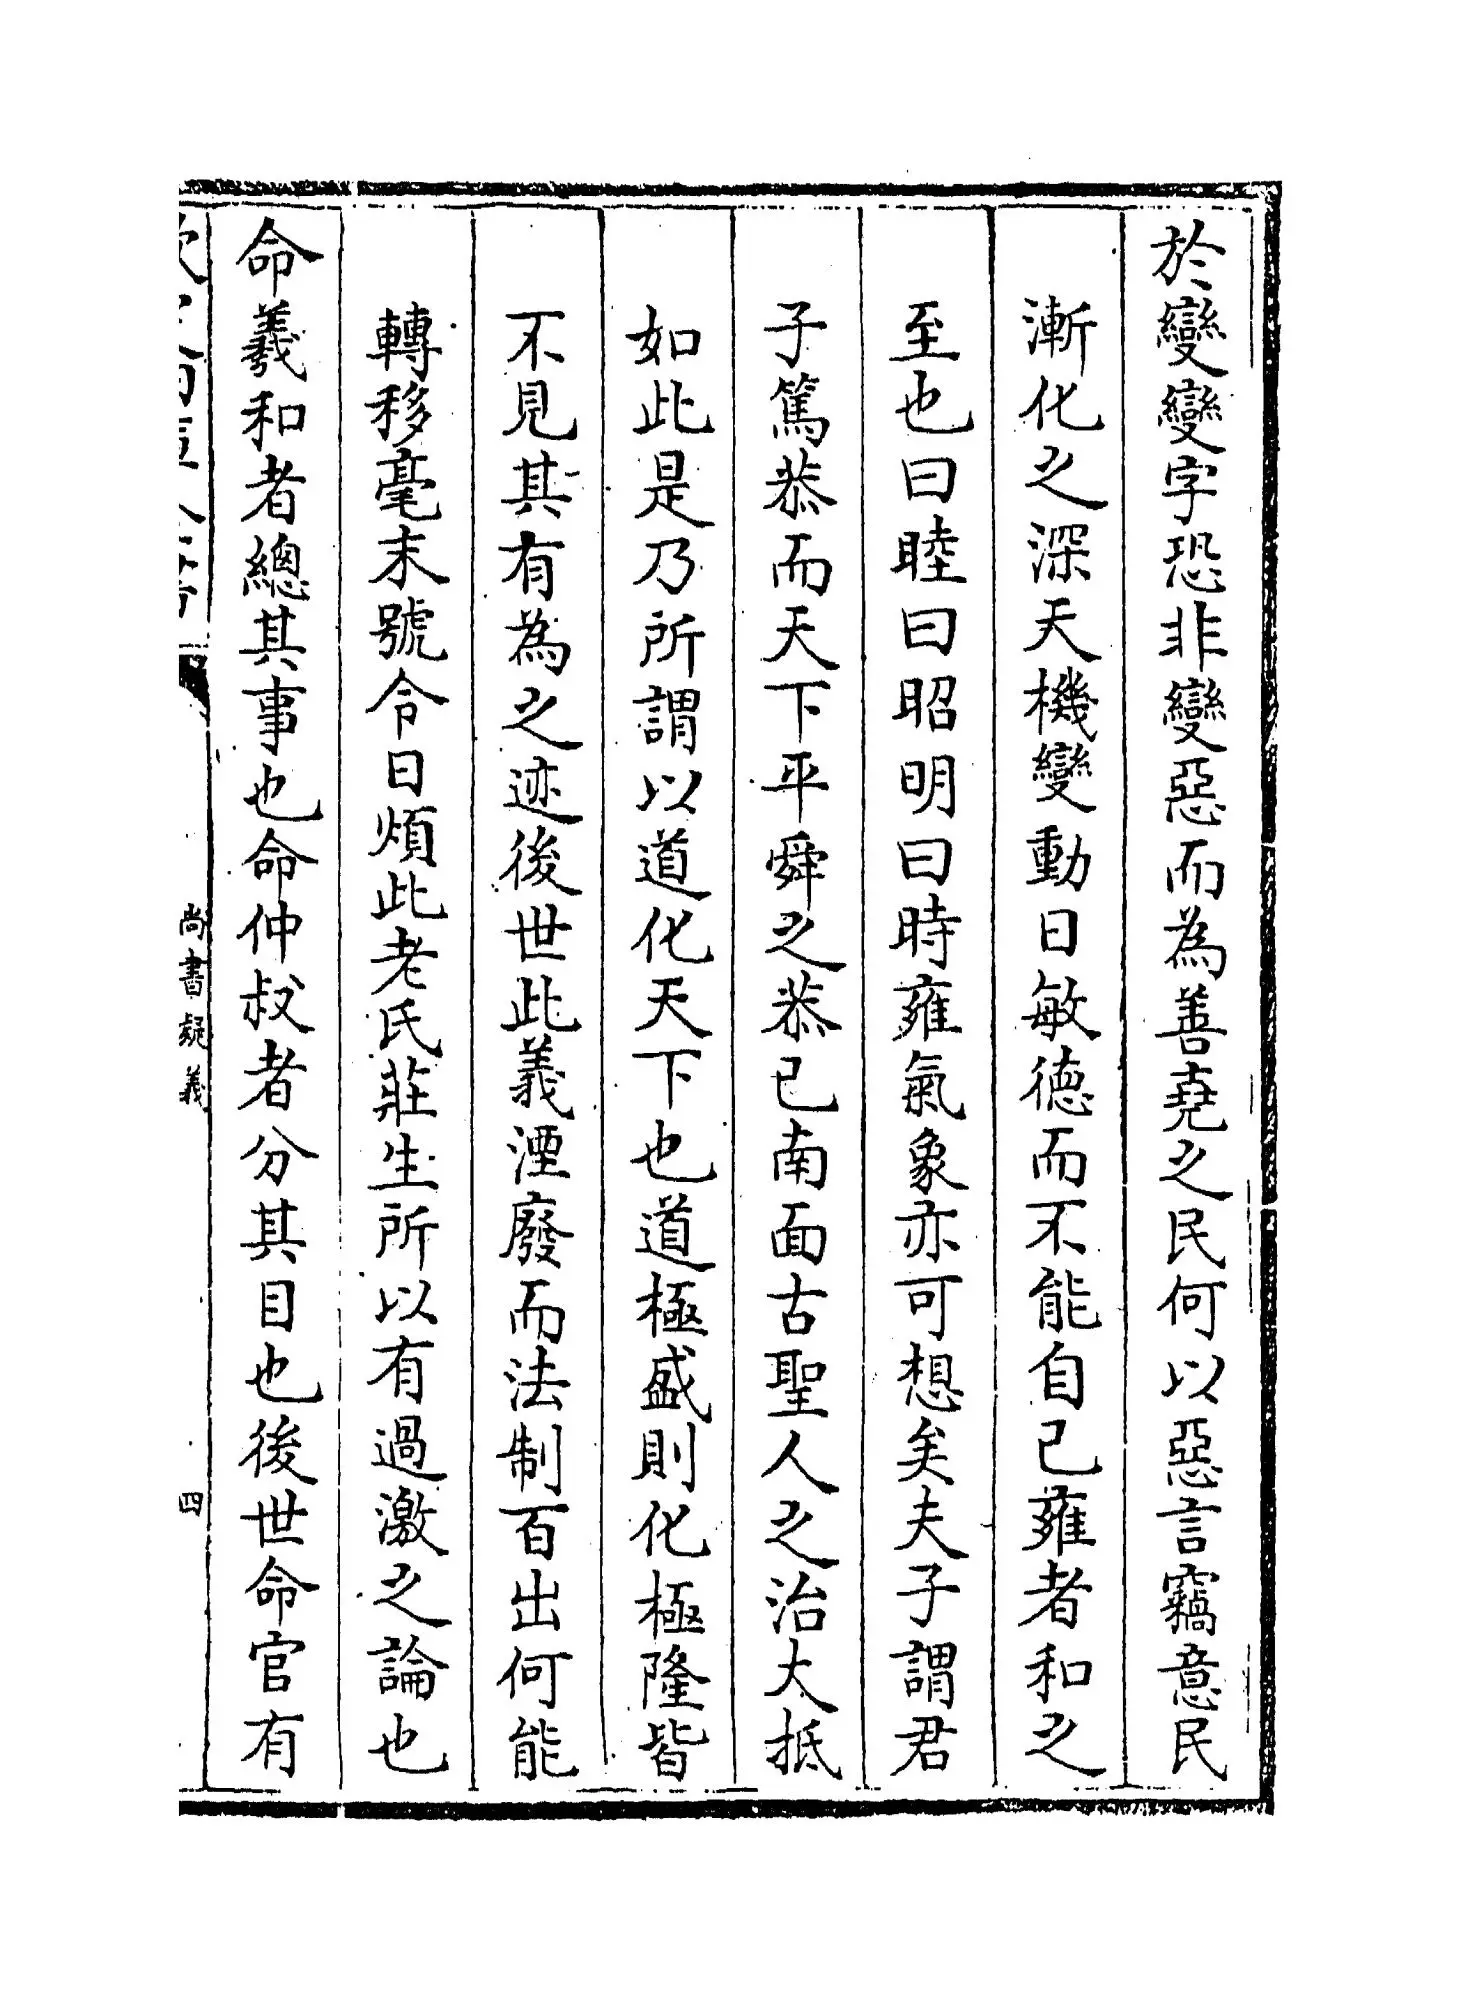 於變變字恐非變惡而為善堯之民何以惡言竊意民
漸化之深天機變動日敏德而不能自已雍者和之
至也曰睦曰昭明曰時雍氣象亦可想矣夫子謂君
子篤恭而天下平舜之恭已南面古聖人之治大抵
如此是乃所謂以道化天下也道極盛則化極隆皆
不見其有為之迹後世此義湮廢而法制百出何能
轉移毫末號令日煩此老氏莊生所以有過激之論也
命羲和者總其事也命仲叔者分其目也後世命官有
尚書疑義
四